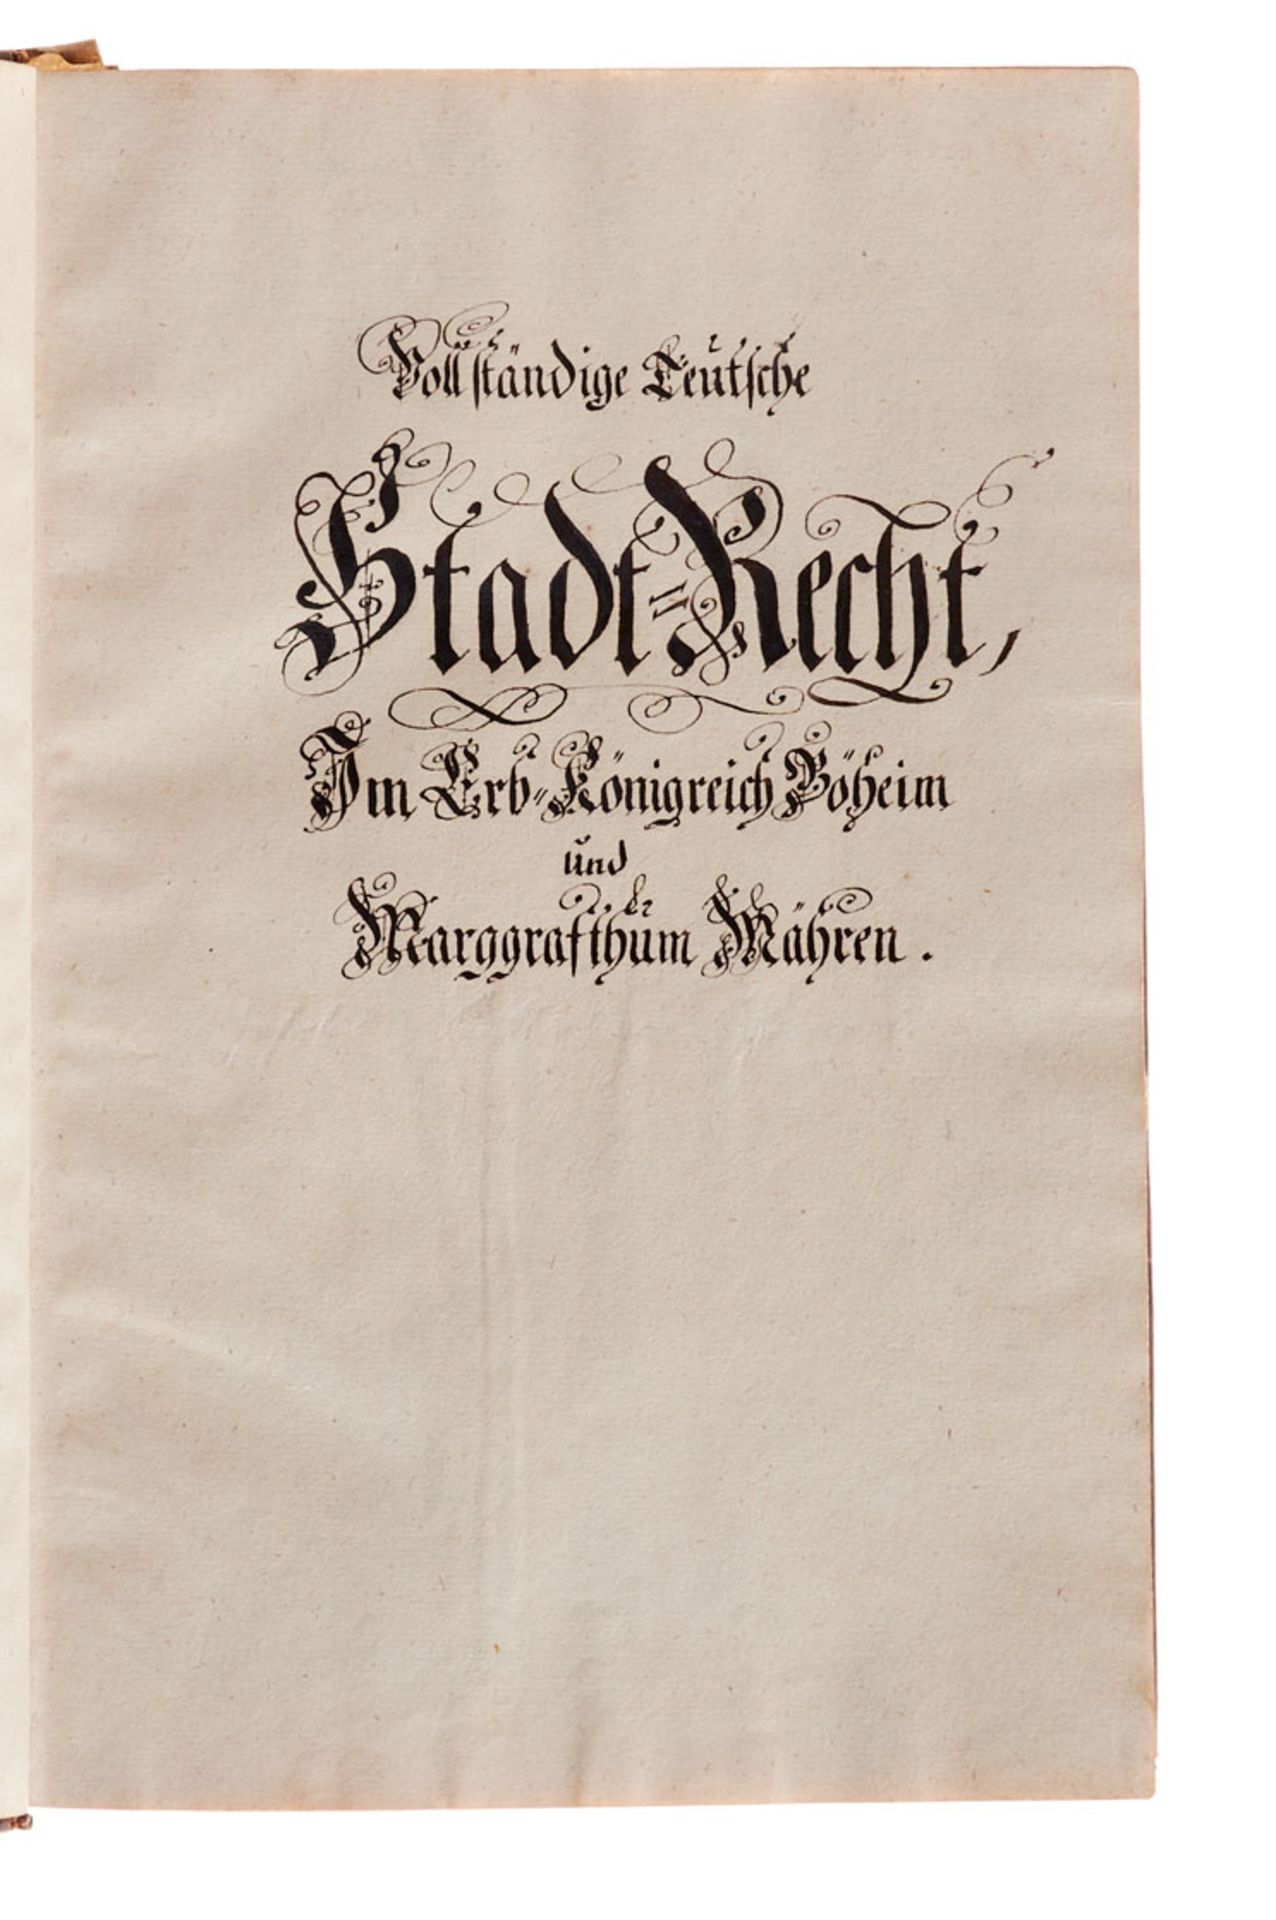 Vollständige Teutsche
Stadt=Recht,
Im Erb=Königreich Böheim
und
Marggrafthum Mähren.